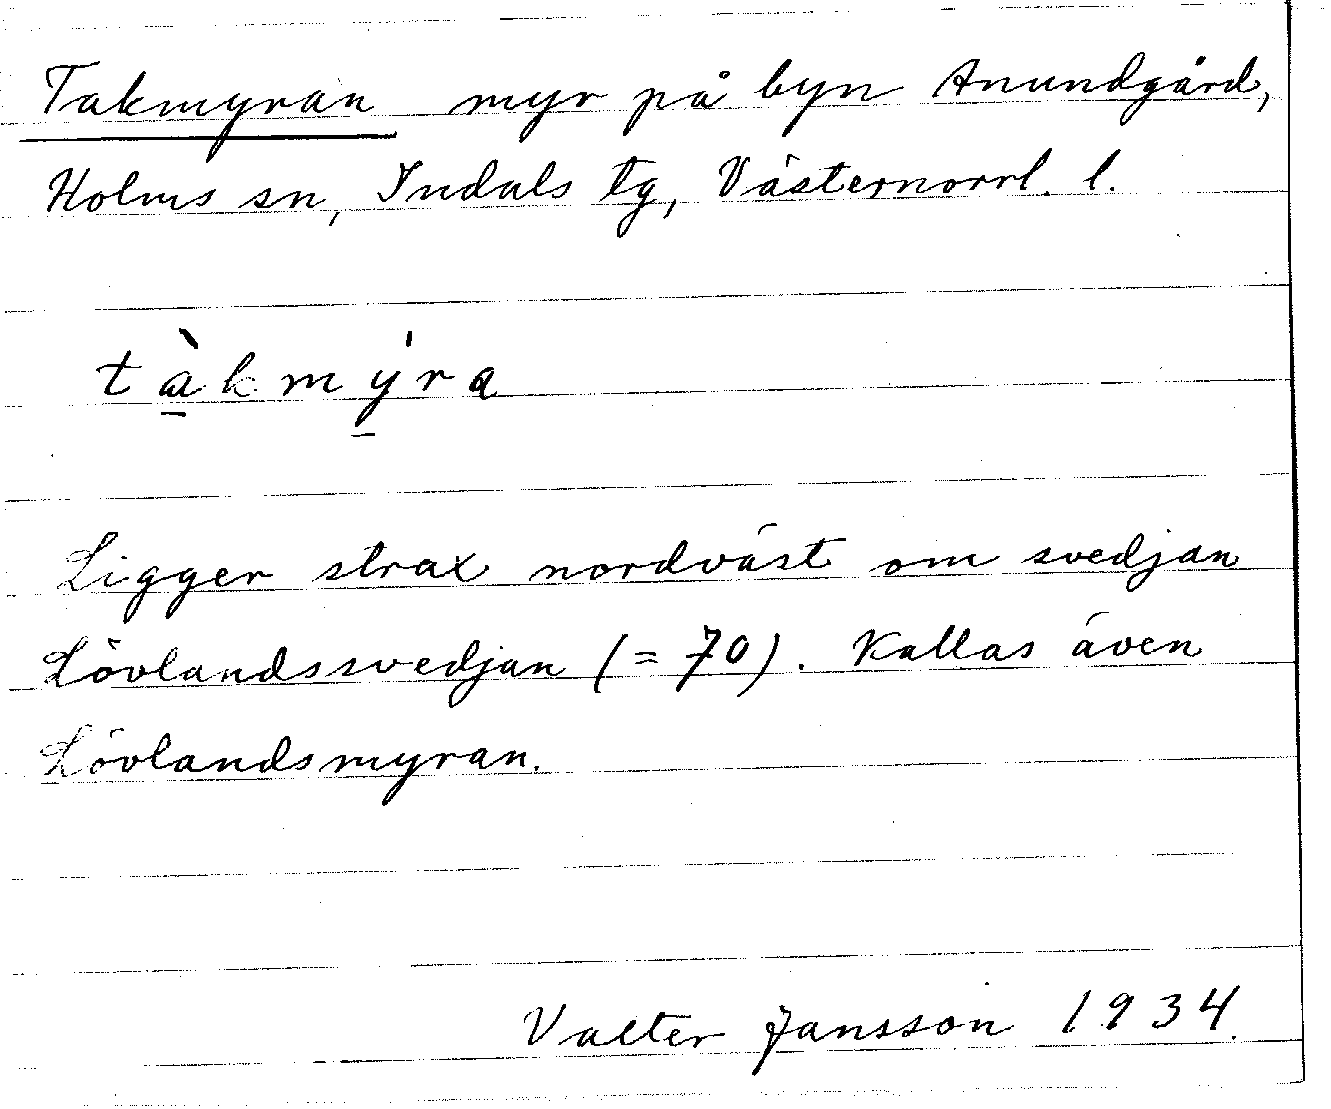 Takmyran myr på byn Anundgård,
Holms sn, Indals tg, Västernorrl. l.
tàkmýra
Ligger strax nordväst om svedjan
Lövlandssvedjan (= 70). Kallas även
Lövlandsmyran.
Valter Jansson 1934.